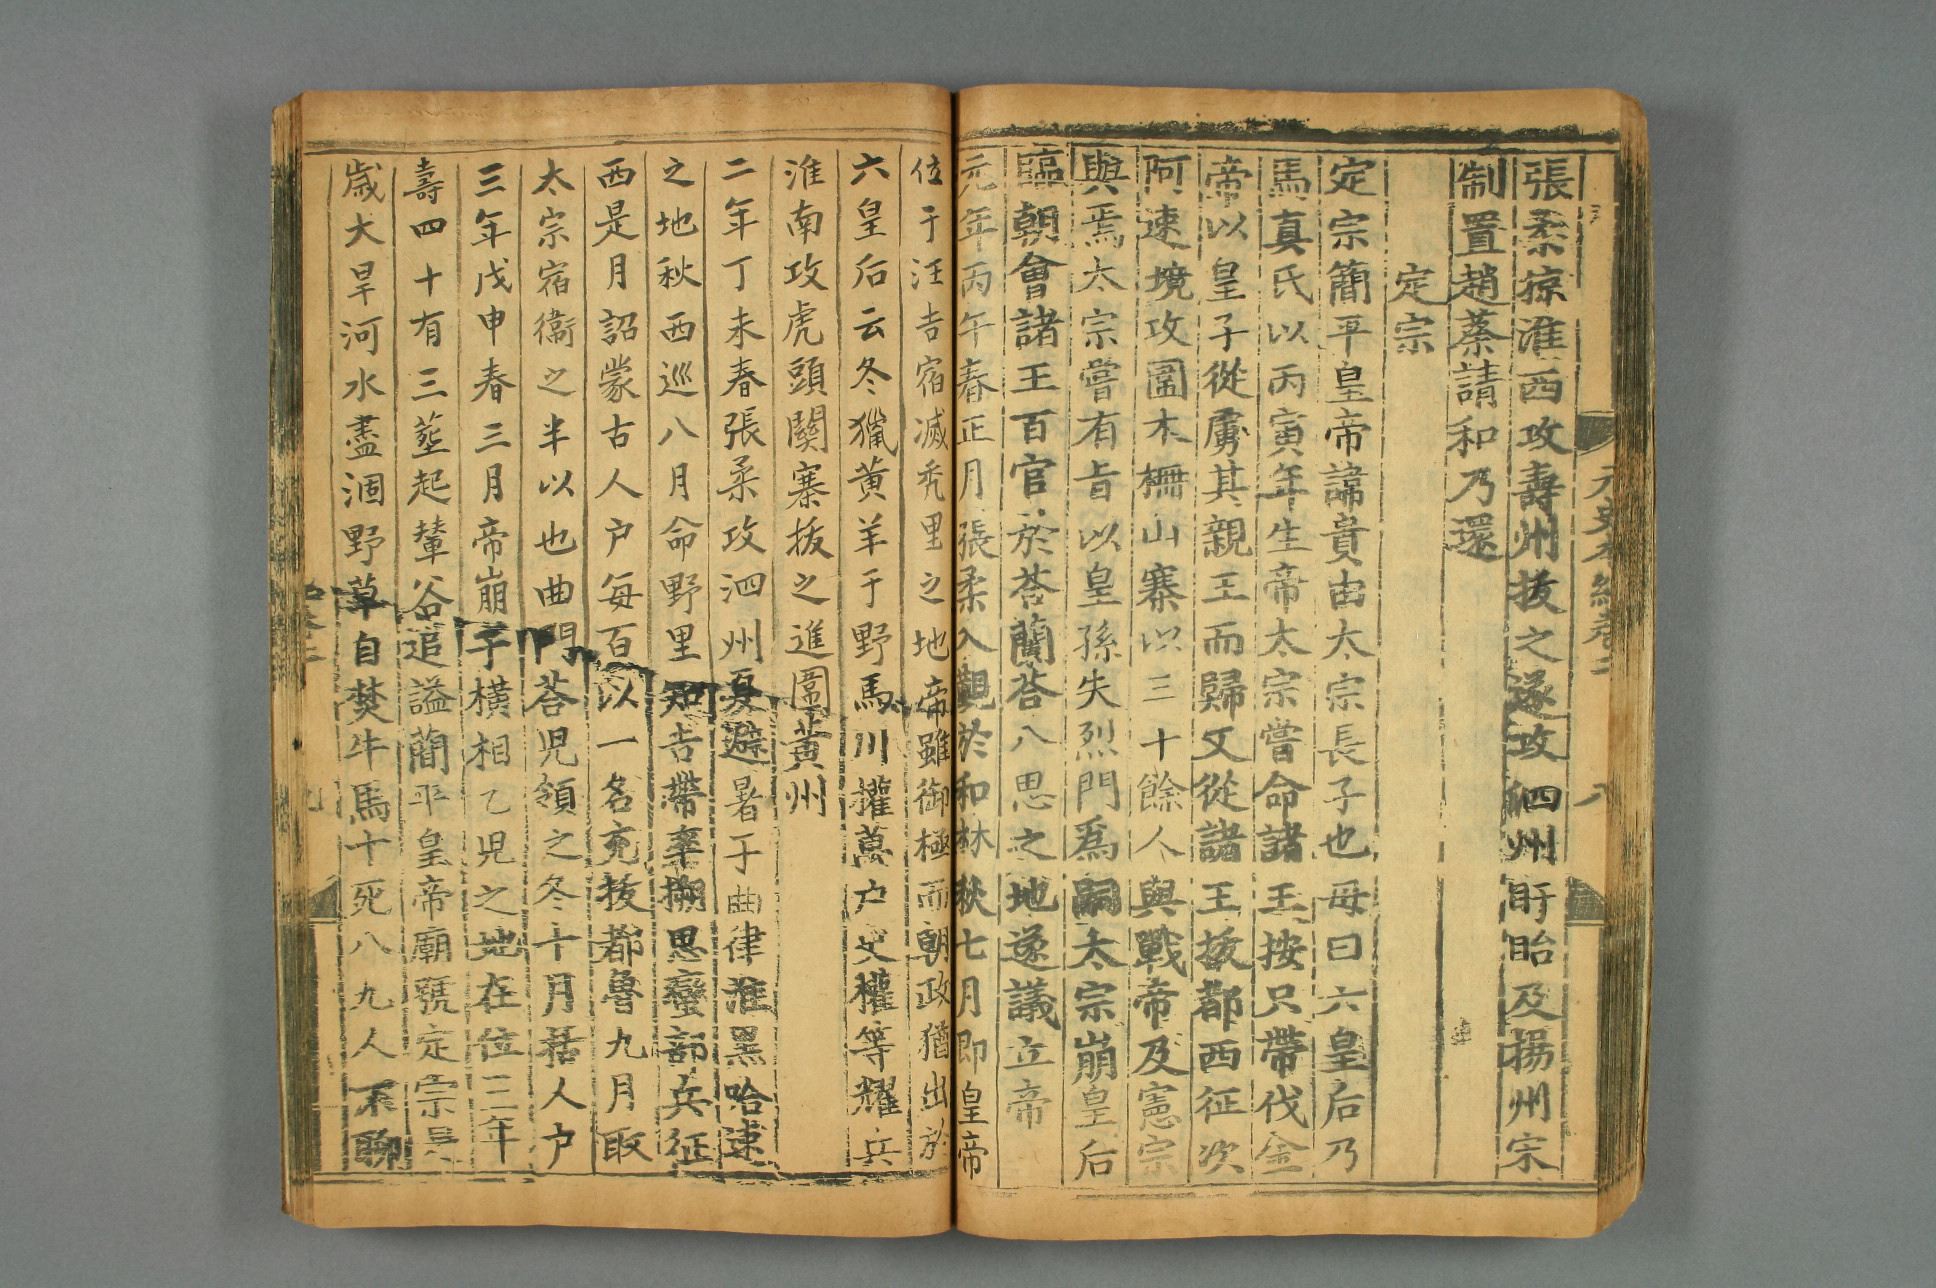 張柔掠淮西攻壽州拔之遂攻泗州盱眙及揚州宋
制置趙蔡請和乃還
定宗
定宗簡平皇帝諱貴由太宗長子也母曰六皇后乃
馬真氏以丙寅年生帝太宗嘗命諸王按只帶伐金
帝以皇子從虜其親王而歸又從諸王拔都西征次
阿速境攻圍木柵山寨以三十餘人與戰帝及憲宗
與焉太宗嘗有旨以皇孫失烈門爲嗣太宗崩皇后
臨朝會諸王百官於荅蘭荅八思之地遂議立帝
元年丙午春正月張柔入覲於和林秋七月即皇帝
位于汪吉宿滅禿里之地帝雖御極而朝政猶出於
六皇后云冬獵黄羊于野馬川權萬户史權等耀兵
淮南攻虎頭關寨拔之進圍黄州
二年丁未春張柔攻泗州夏避暑于曲律淮黑哈速
之地秋西巡八月命野里知吉帶率搠思蠻部兵征
西是月詔蒙古人户每百以一名充拔都魯九月取
太宗宿衞之半以也曲門荅児領之冬十月括人户
三年戊申春三月帝崩于橫相乙児之地在位三年
壽四十有三葬起輦谷追謚簡平皇帝廟號定宗是
歳大旱河水盡涸野草自焚牛馬十死八九人不聊
元史本紀卷二
八
九